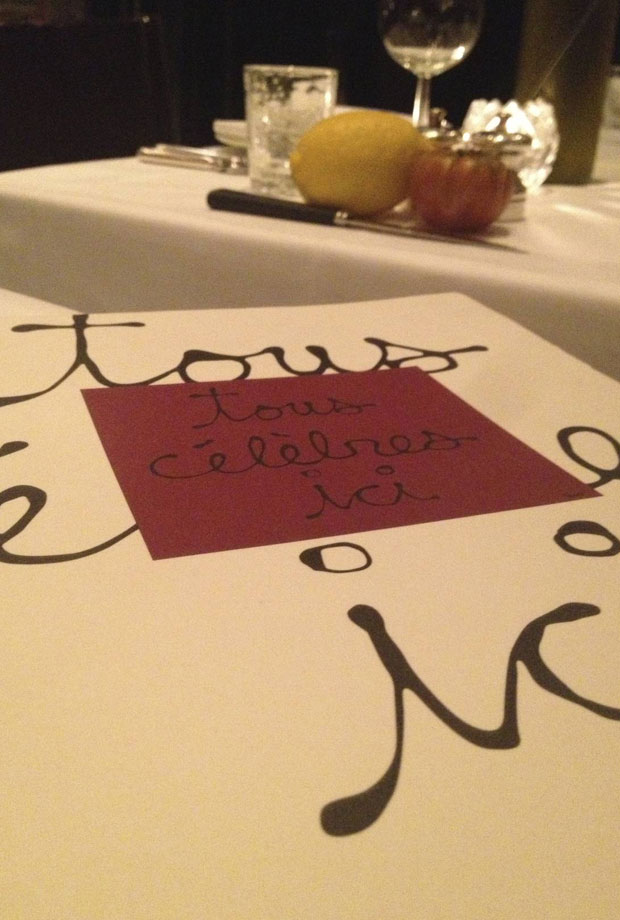 tous
tous
célèbres
ici
é
ici